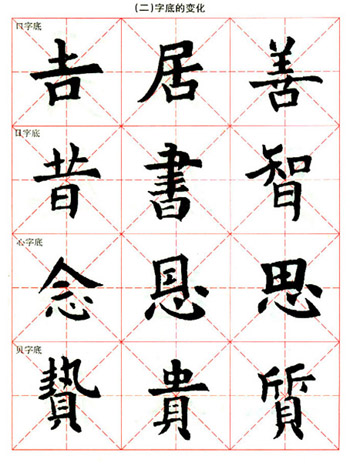 (二)字底的变化
口字底
吉 居 善
日字底
昔 書 智
心字底
念 恩 思
贝字底
贄 貴 質